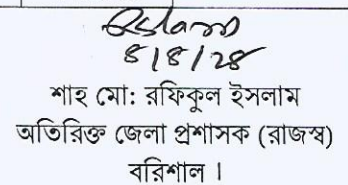 ৪/৪/২৪
শাহ মো: রফিকুল ইসলাম
অতিরিক্ত জেলা প্রশাসক (রাজস্ব)
বরিশাল ।